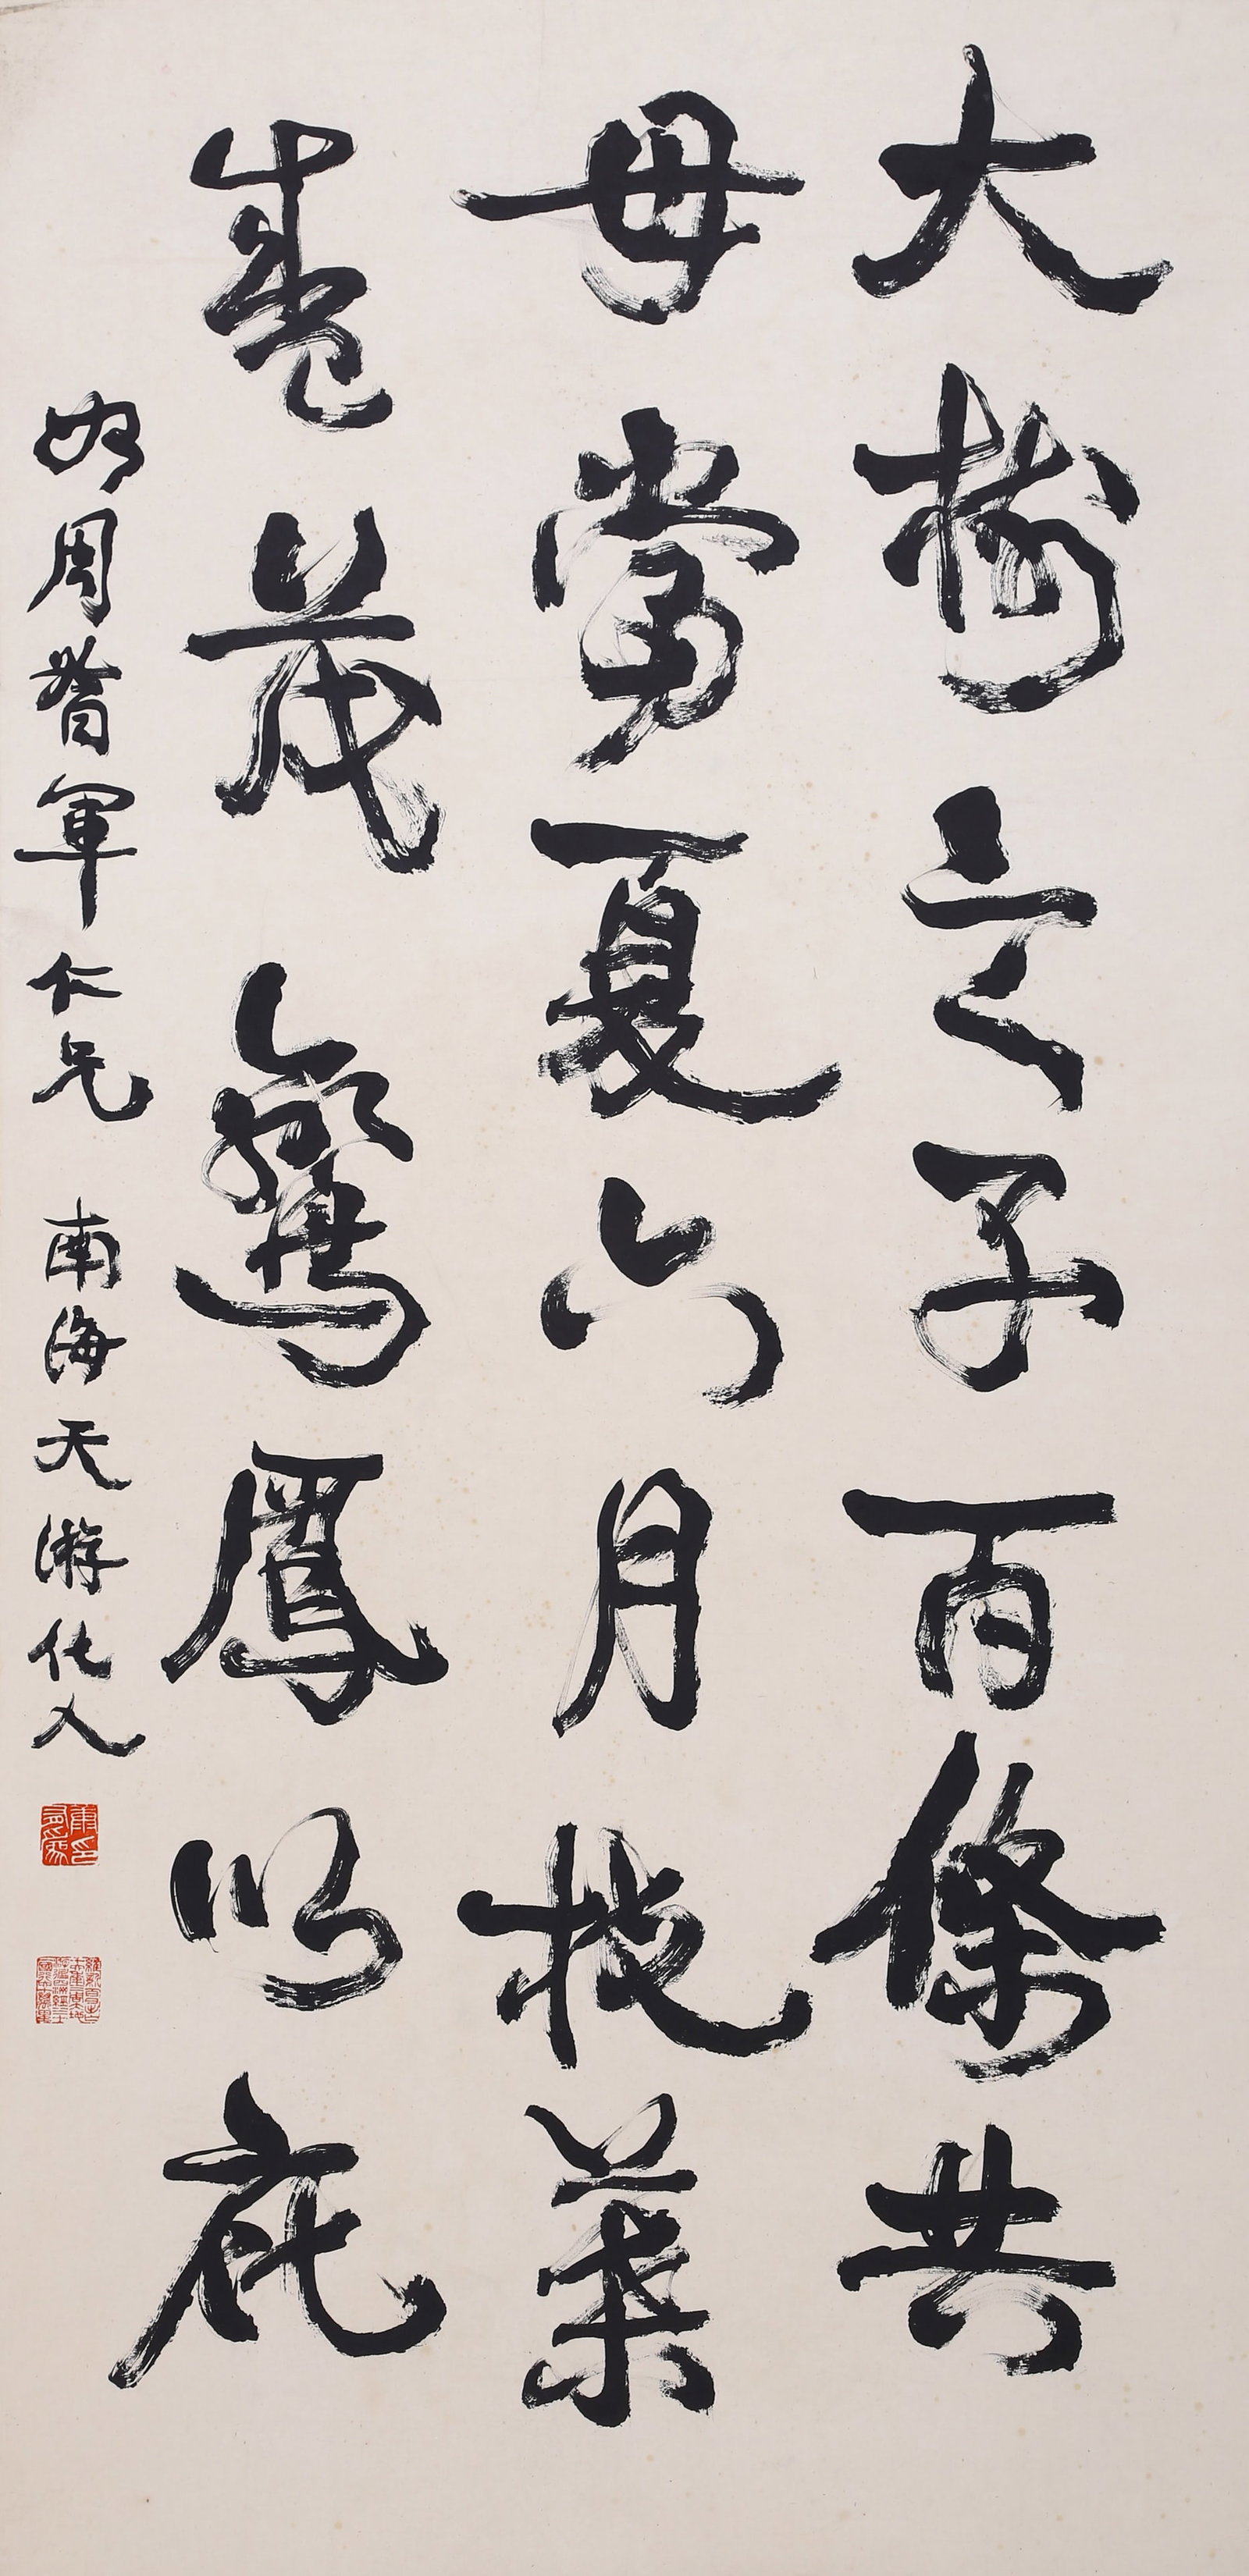 大樹之子百條共
母當夏六月枝葉
盛茂鸞鳳以庇
周督軍仁兄 南海天游化人
康有為印